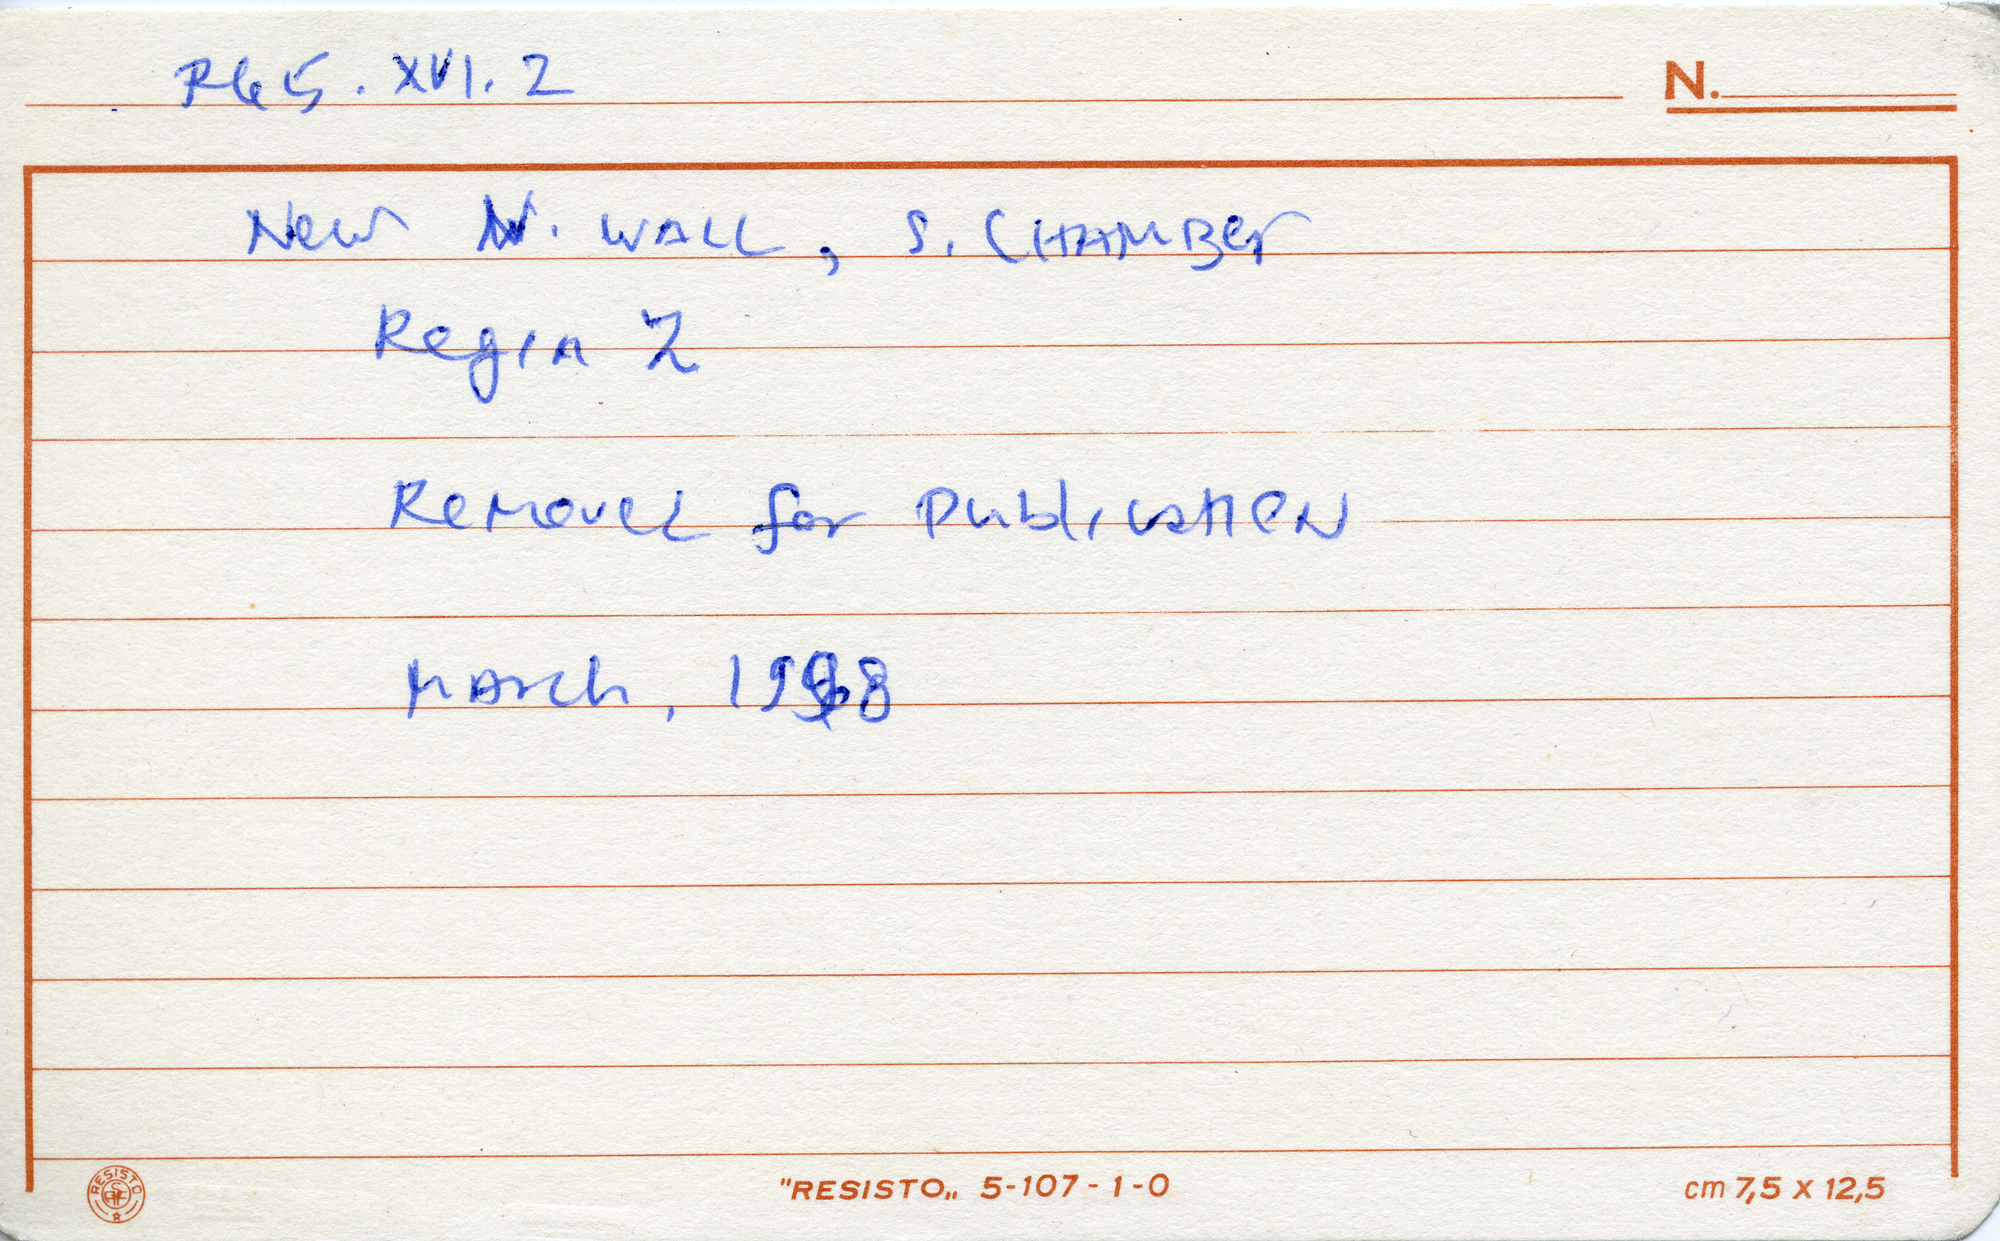 R65.XVI.2
N.
New N. WALL, S. CHAMBER
Regia 2
Removed for Publication
March, 1998
RESISTO
"RESISTO„ 5-107-1-0
cm 7,5 x 12,5